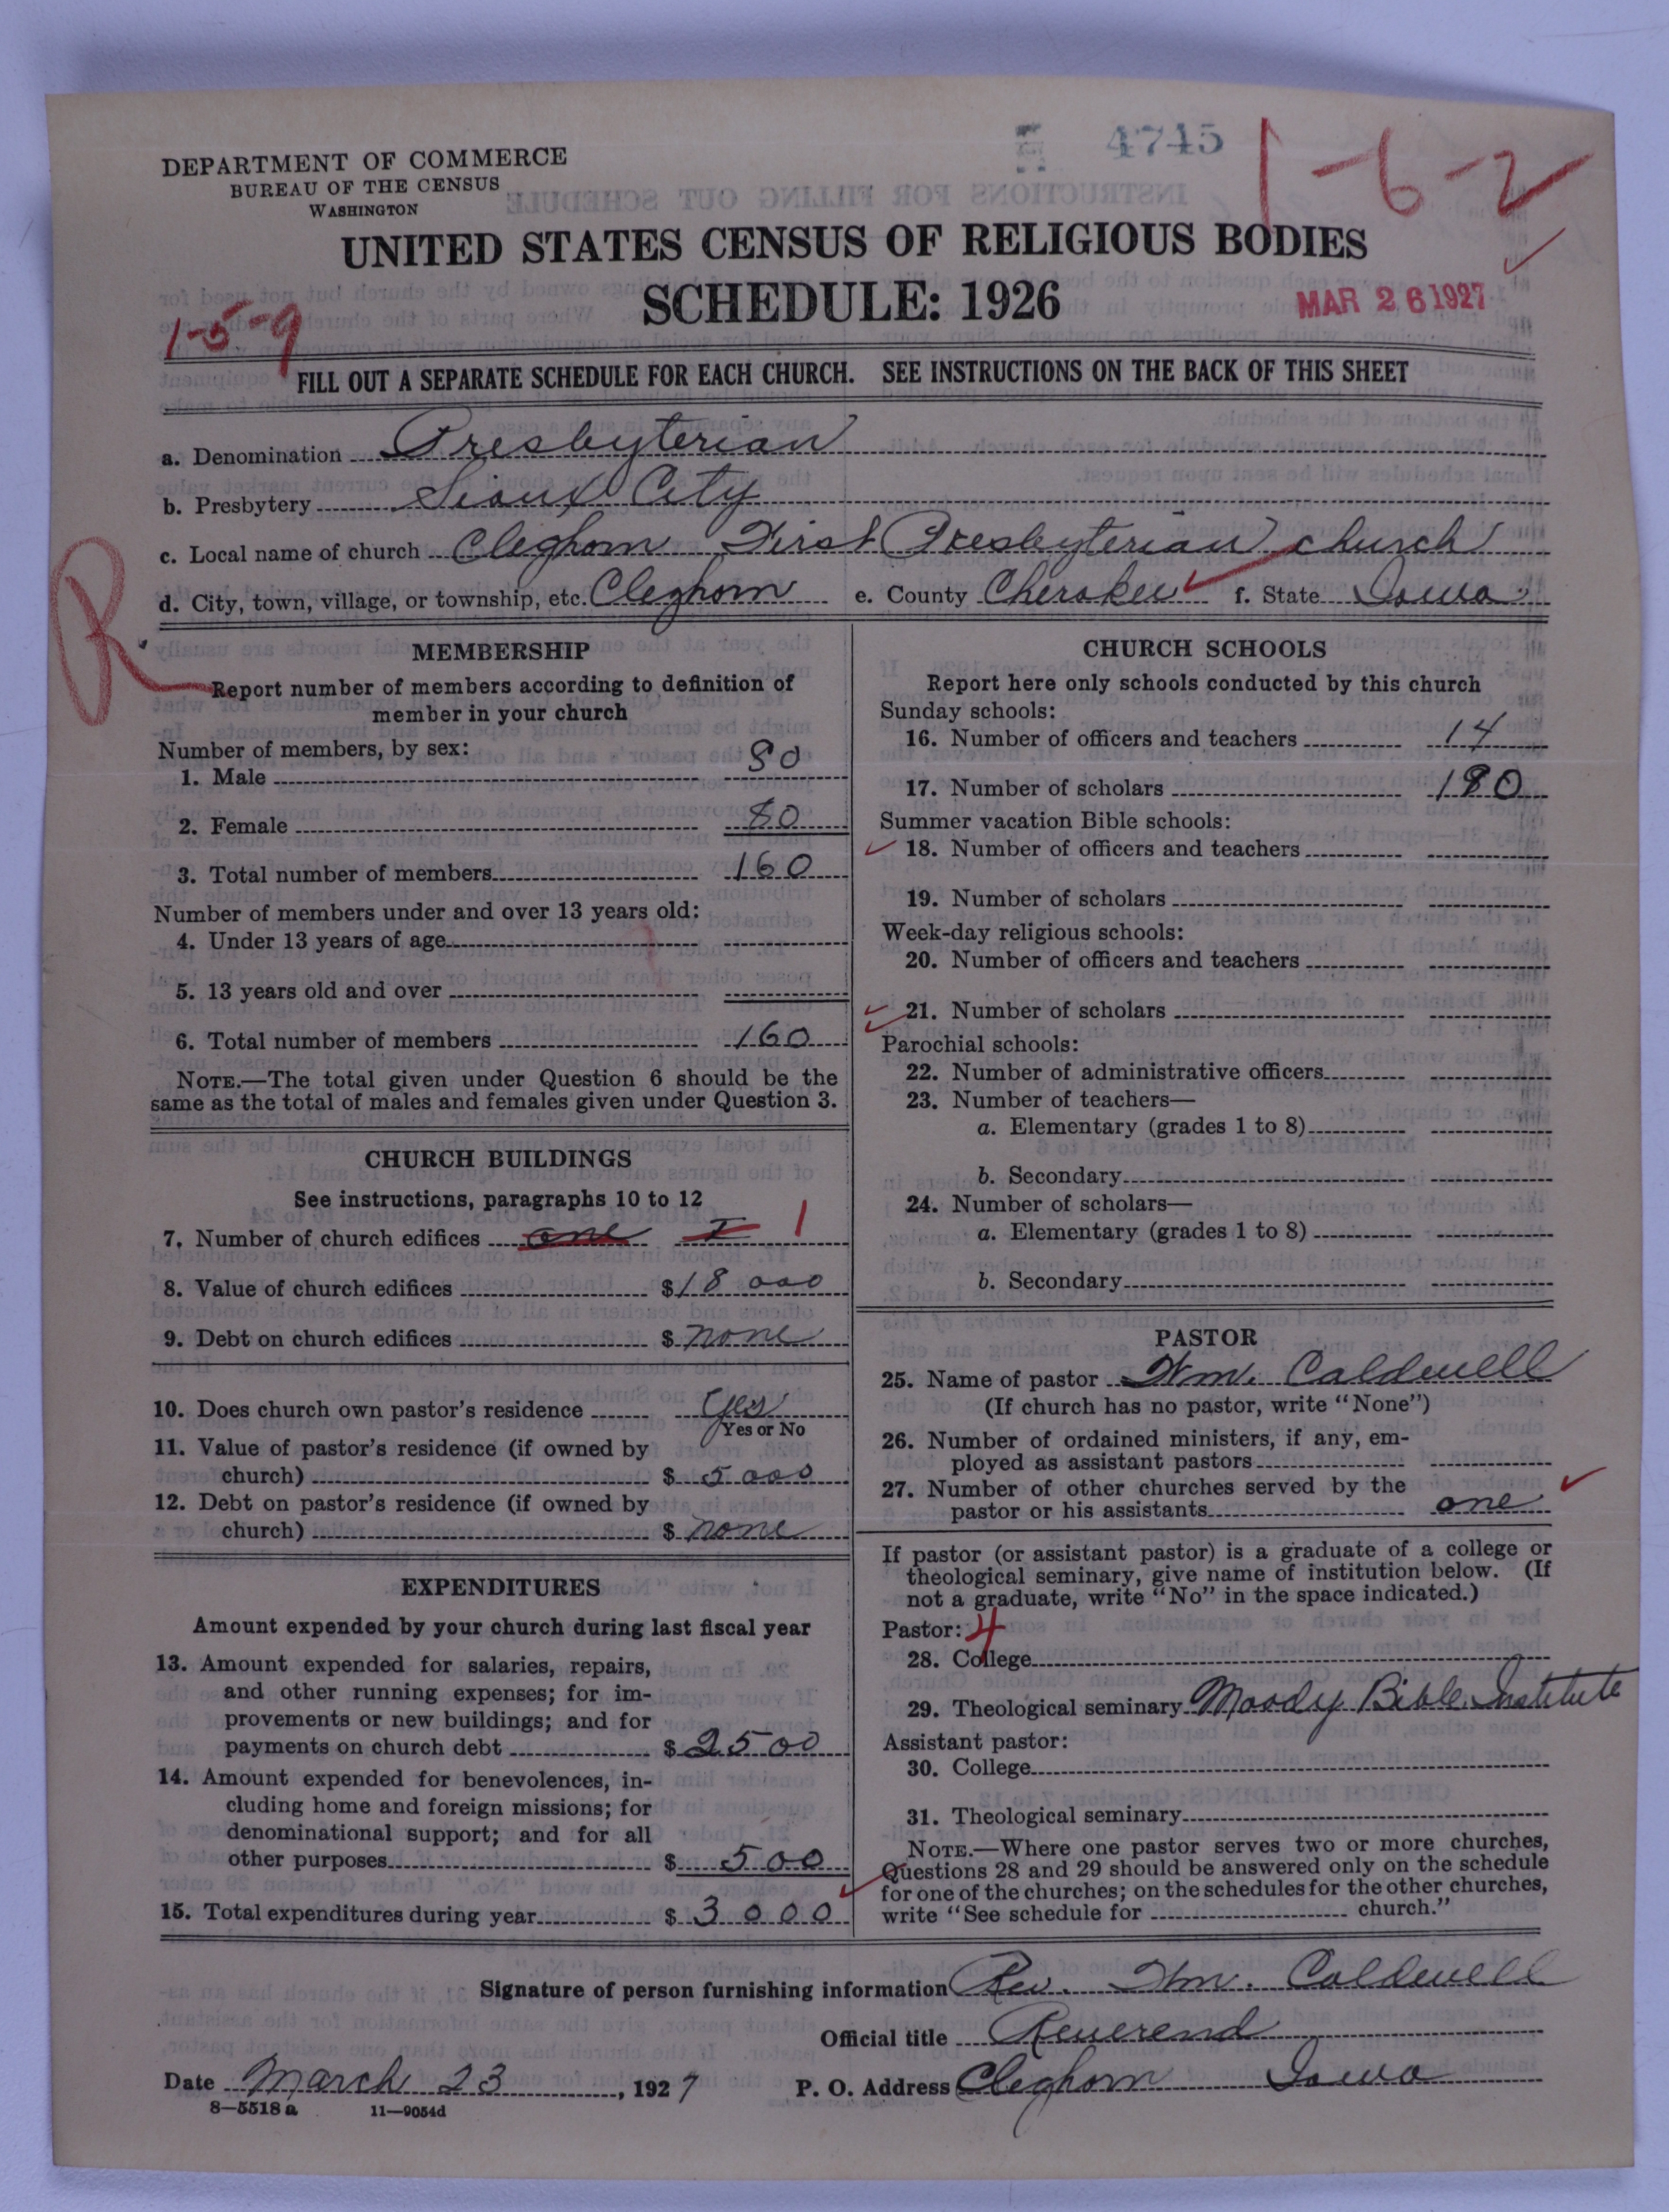 4745
1-6-2
DEPARTMENT OF COMMERCE
BUREAU OF THE CENSUS
WASHINGTON
UNITED STATES CENSUS OF RELIGIOUS BODIES
SCHEDULE: 1926
MAR 26 1927
1-5-9
FILL OUT A SEPARATE SCHEDULE FOR EACH CHURCH. SEE INSTRUCTIONS ON THE BACK OF THIS SHEET
a. Denomination Presbyterian
b. Presbytery Sioux City
c. Local name of church Cleghorn First Presbyterian church
d. City, town, village, or township, etc. Cleghorn e. County Cherokee f. State Iowa
R
MEMBERSHIP
Report number of members according to definition of
member in your church
Number of members, by sex:
1. Male 80
2. Female 80
3. Total number of members 160
Number of members under and over 13 years old:
4. Under 13 years of age
5. 13 years old and over
6. Total number of members 160
NOTE.—The total given under Question 6 should be the
same as the total of males and females given under Question 3.
CHURCH BUILDINGS
See instructions, paragraphs 10 to 12
7. Number of church edifices one I 1
8. Value of church edifices $18 000
9. Debt on church edifices $ none
10. Does church own pastor's residence Yes
Yes or No
11. Value of pastor's residence (if owned by
church) $ 5 000
12. Debt on pastor's residence (if owned by
church) $ none
EXPENDITURES
Amount expended by your church during last fiscal year
13. Amount expended for salaries, repairs,
and other running expenses; for im-
provements or new buildings; and for
payments on church debt $ 2500
14. Amount expended for benevolences, in-
cluding home and foreign missions; for
denominational support; and for all
other purposes $ 500
15. Total expenditures during year $ 3000
CHURCH SCHOOLS
Report here only schools conducted by this church
Sunday schools:
16. Number of officers and teachers 14
17. Number of scholars 180
Summer vacation Bible schools:
18. Number of officers and teachers
19. Number of scholars
Week-day religious schools:
20. Number of officers and teachers
21. Number of scholars
Parochial schools:
22. Number of administrative officers
23. Number of teachers—
a. Elementary (grades 1 to 8)
b. Secondary
24. Number of scholars—
a. Elementary (grades 1 to 8)
b. Secondary
PASTOR
25. Name of pastor Wm. Caldwell
(If church has no pastor, write "None")
26. Number of ordained ministers, if any, em-
ployed as assistant pastors
27. Number of other churches served by the
pastor or his assistants one
If pastor (or assistant pastor) is a graduate of a college or
theological seminary, give name of institution below. (If
not a graduate, write "No" in the space indicated.)
Pastor: 4
28. College
29. Theological seminary Moody Bible Institute
Assistant pastor:
30. College
31. Theological seminary
NOTE.—Where one pastor serves two or more churches,
Questions 28 and 29 should be answered only on the schedule
for one of the churches; on the schedules for the other churches,
write "See schedule for church."
Signature of person furnishing information Rev. Wm. Caldwell
Official title Reverend
Date March 23, 1927 P. O. Address Cleghorn Iowa
8—5518 a 11—9054d